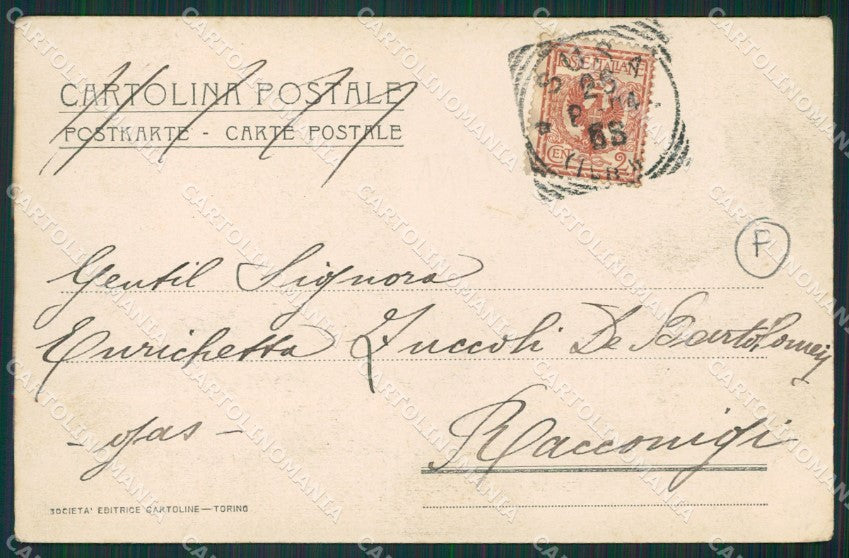 CARTOLINA POSTALE
POSTKARTE - CARTE POSTALE
POSTE ITALIANE
CEN 2
F
Gentil Signora
Enrichetta Zuccoli De Bartolomeis
- gas -
Racconigi
SOCIETA' EDITRICE CARTOLINE — TORINO
CARTOLINOMANIA